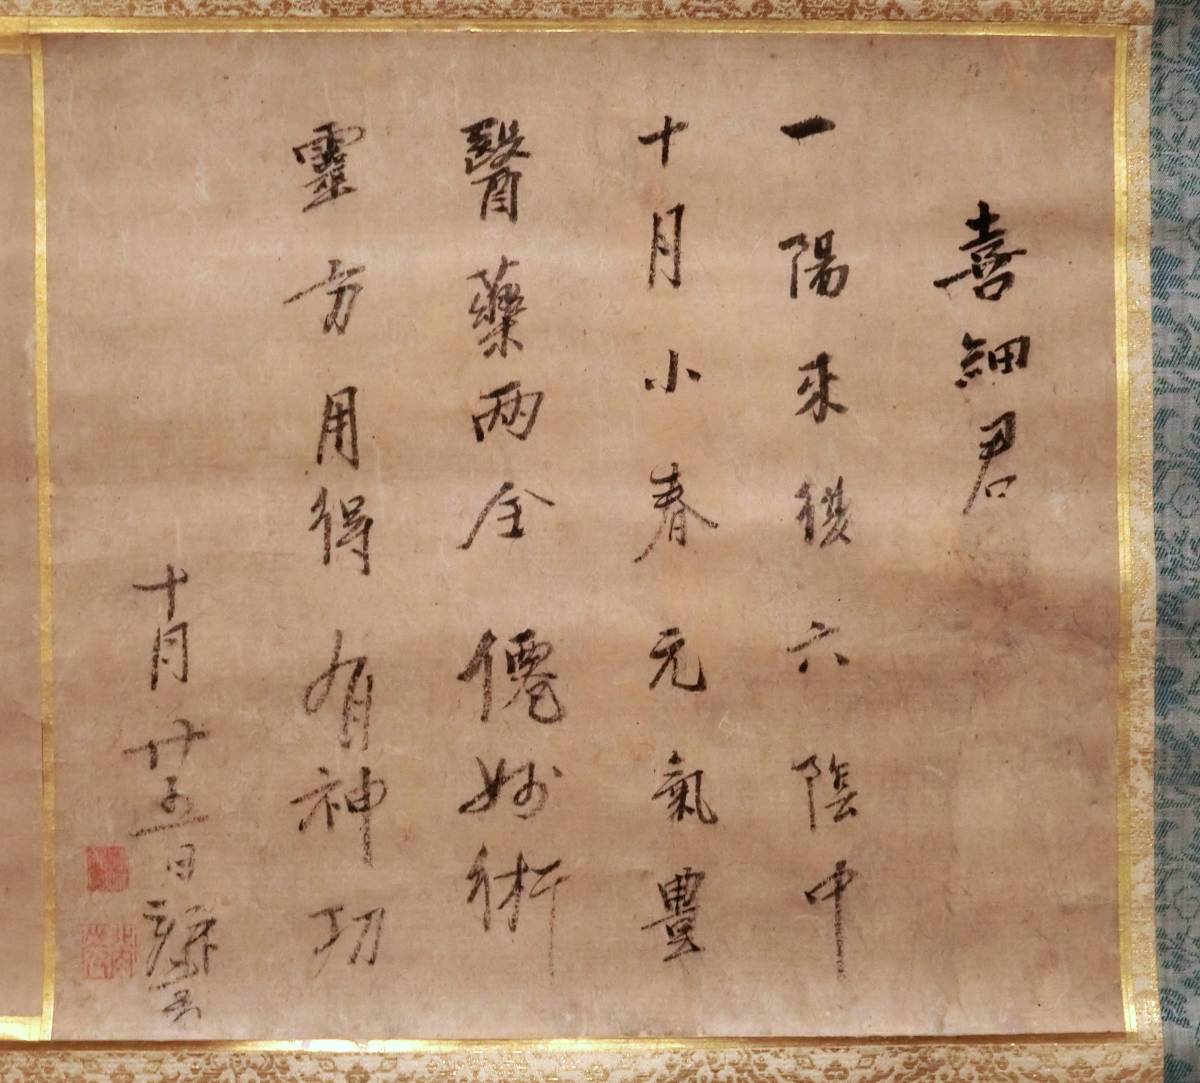 喜細君
一陽来後六陰中
十月小春元氣豊
醫藥两全僊妙術
靈方用得有神功
十月廿五日